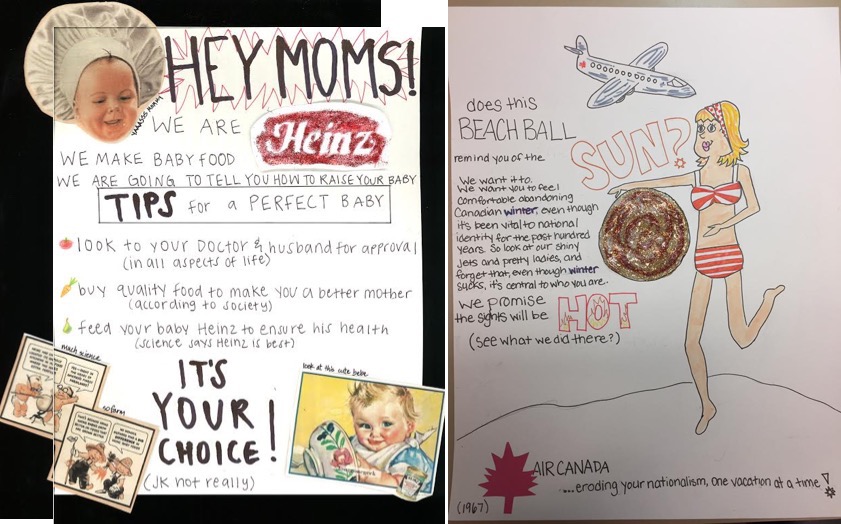 HEY MOMS!
YAAASSS MAMA
WE ARE Heinz
WE MAKE BABY FOOD
WE ARE GOING TO TELL YOU HOW TO RAISE YOUR BABY
TIPS for a PERFECT BABY
look to your DOCTOR & husband for approval
(in all aspects of life)
buy quality food to make you a better mother
(according to society)
feed your baby Heinz to ensure his health
(science says Heinz is best)
much science
so farm
IT'S
YOUR
CHOICE!
(JK not really)
look at this cute bebe
does this
BEACH BALL
remind you of the
SUN?
We want it to.
We want you to feel
comfortable abandoning
Canadian winter, even though
it's been vital to national
identity for the past hundred
years. So look at our shiny
jets and pretty ladies, and
forget that, even though winter
sucks, it's central to who you are.
we promise
the sights will be HOT
(see what we did there?)
AIR CANADA
...eroding your nationalism, one vacation at a time!
(1967)